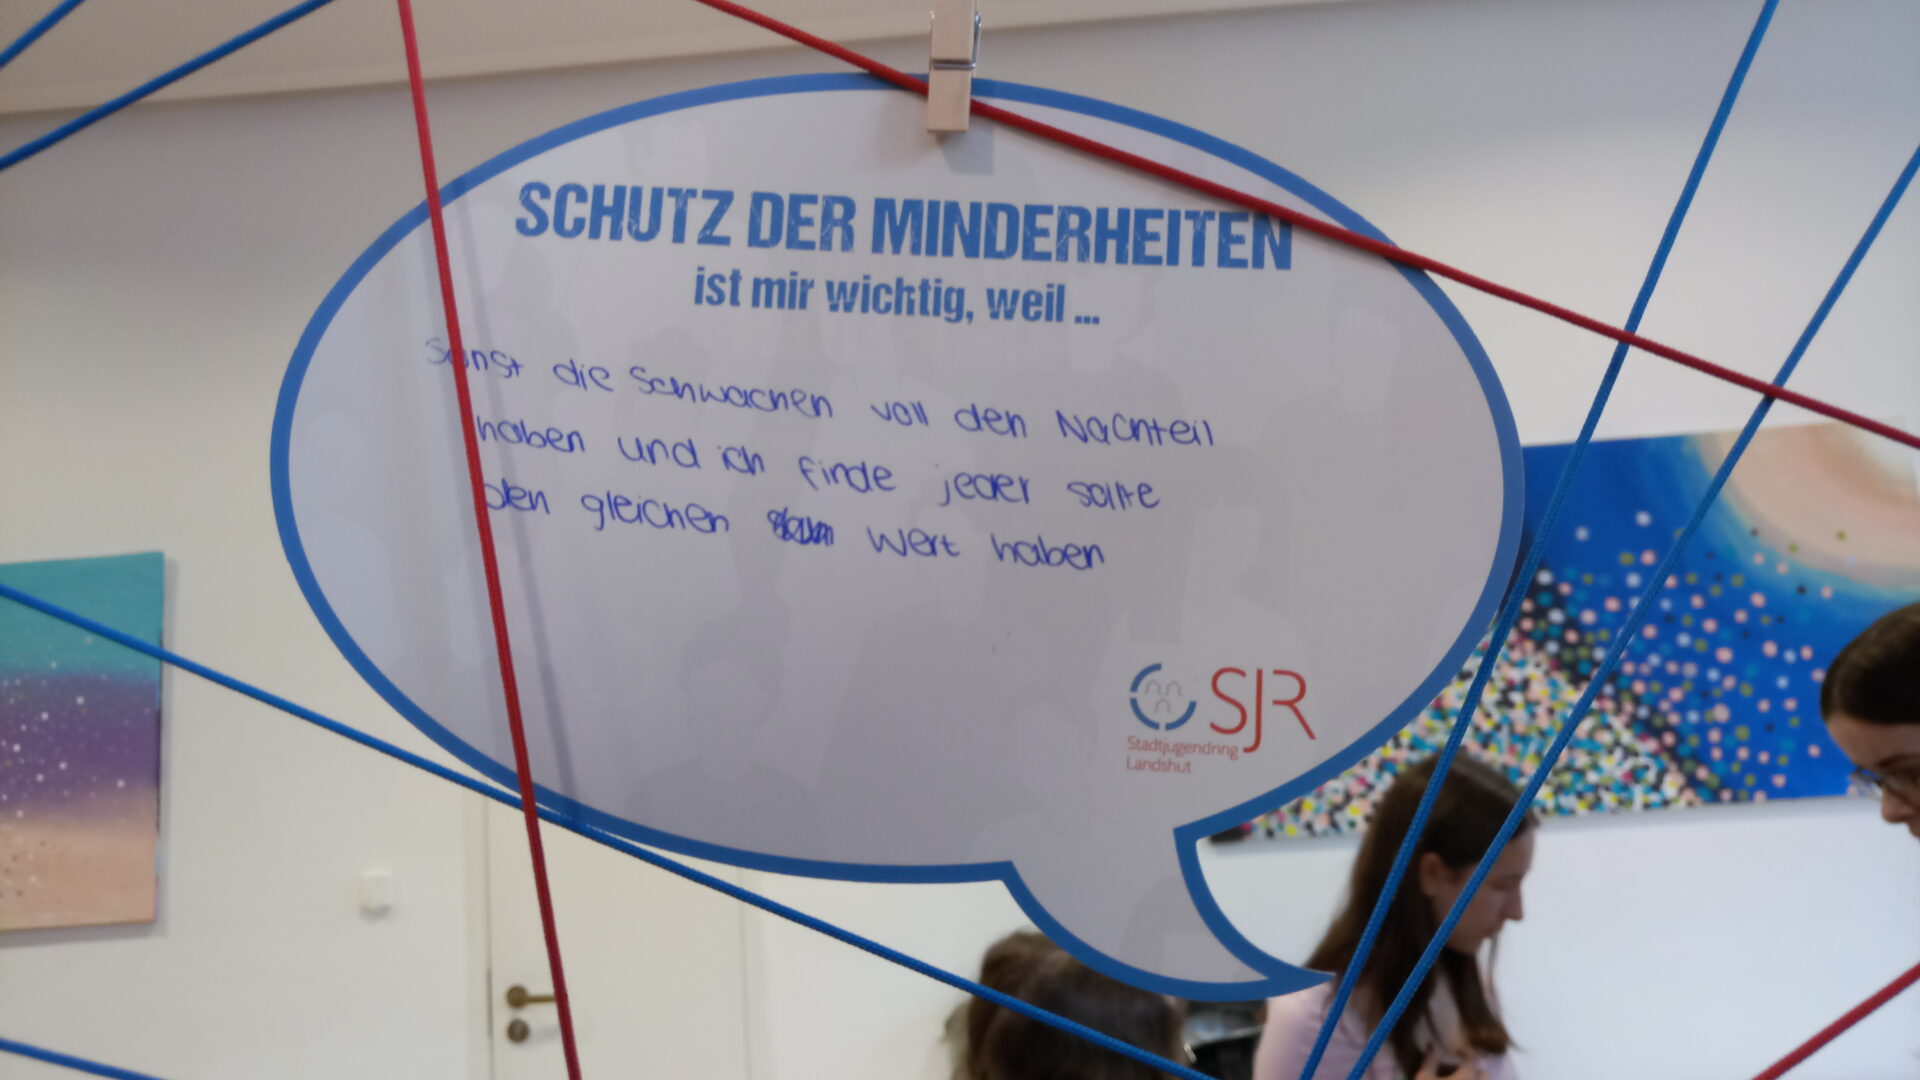 SCHUTZ DER MINDERHEITEN
ist mir wichtig, weil ...
sonst die Schwachen voll den Nachteil
haben und ich finde jeder sollte
den gleichen Wert haben
SJR
Stadtjugendring
Landshut